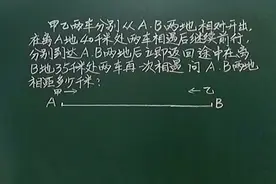 甲乙两车分别从A.B两地相对开出,
在离A地40千米处两车相遇后继续前行,
分别到达A.B两地后立即返回途中在离
B地35千米处两车再一次相遇 问A.B两地
相距多少千米?
甲→ ←乙
A B